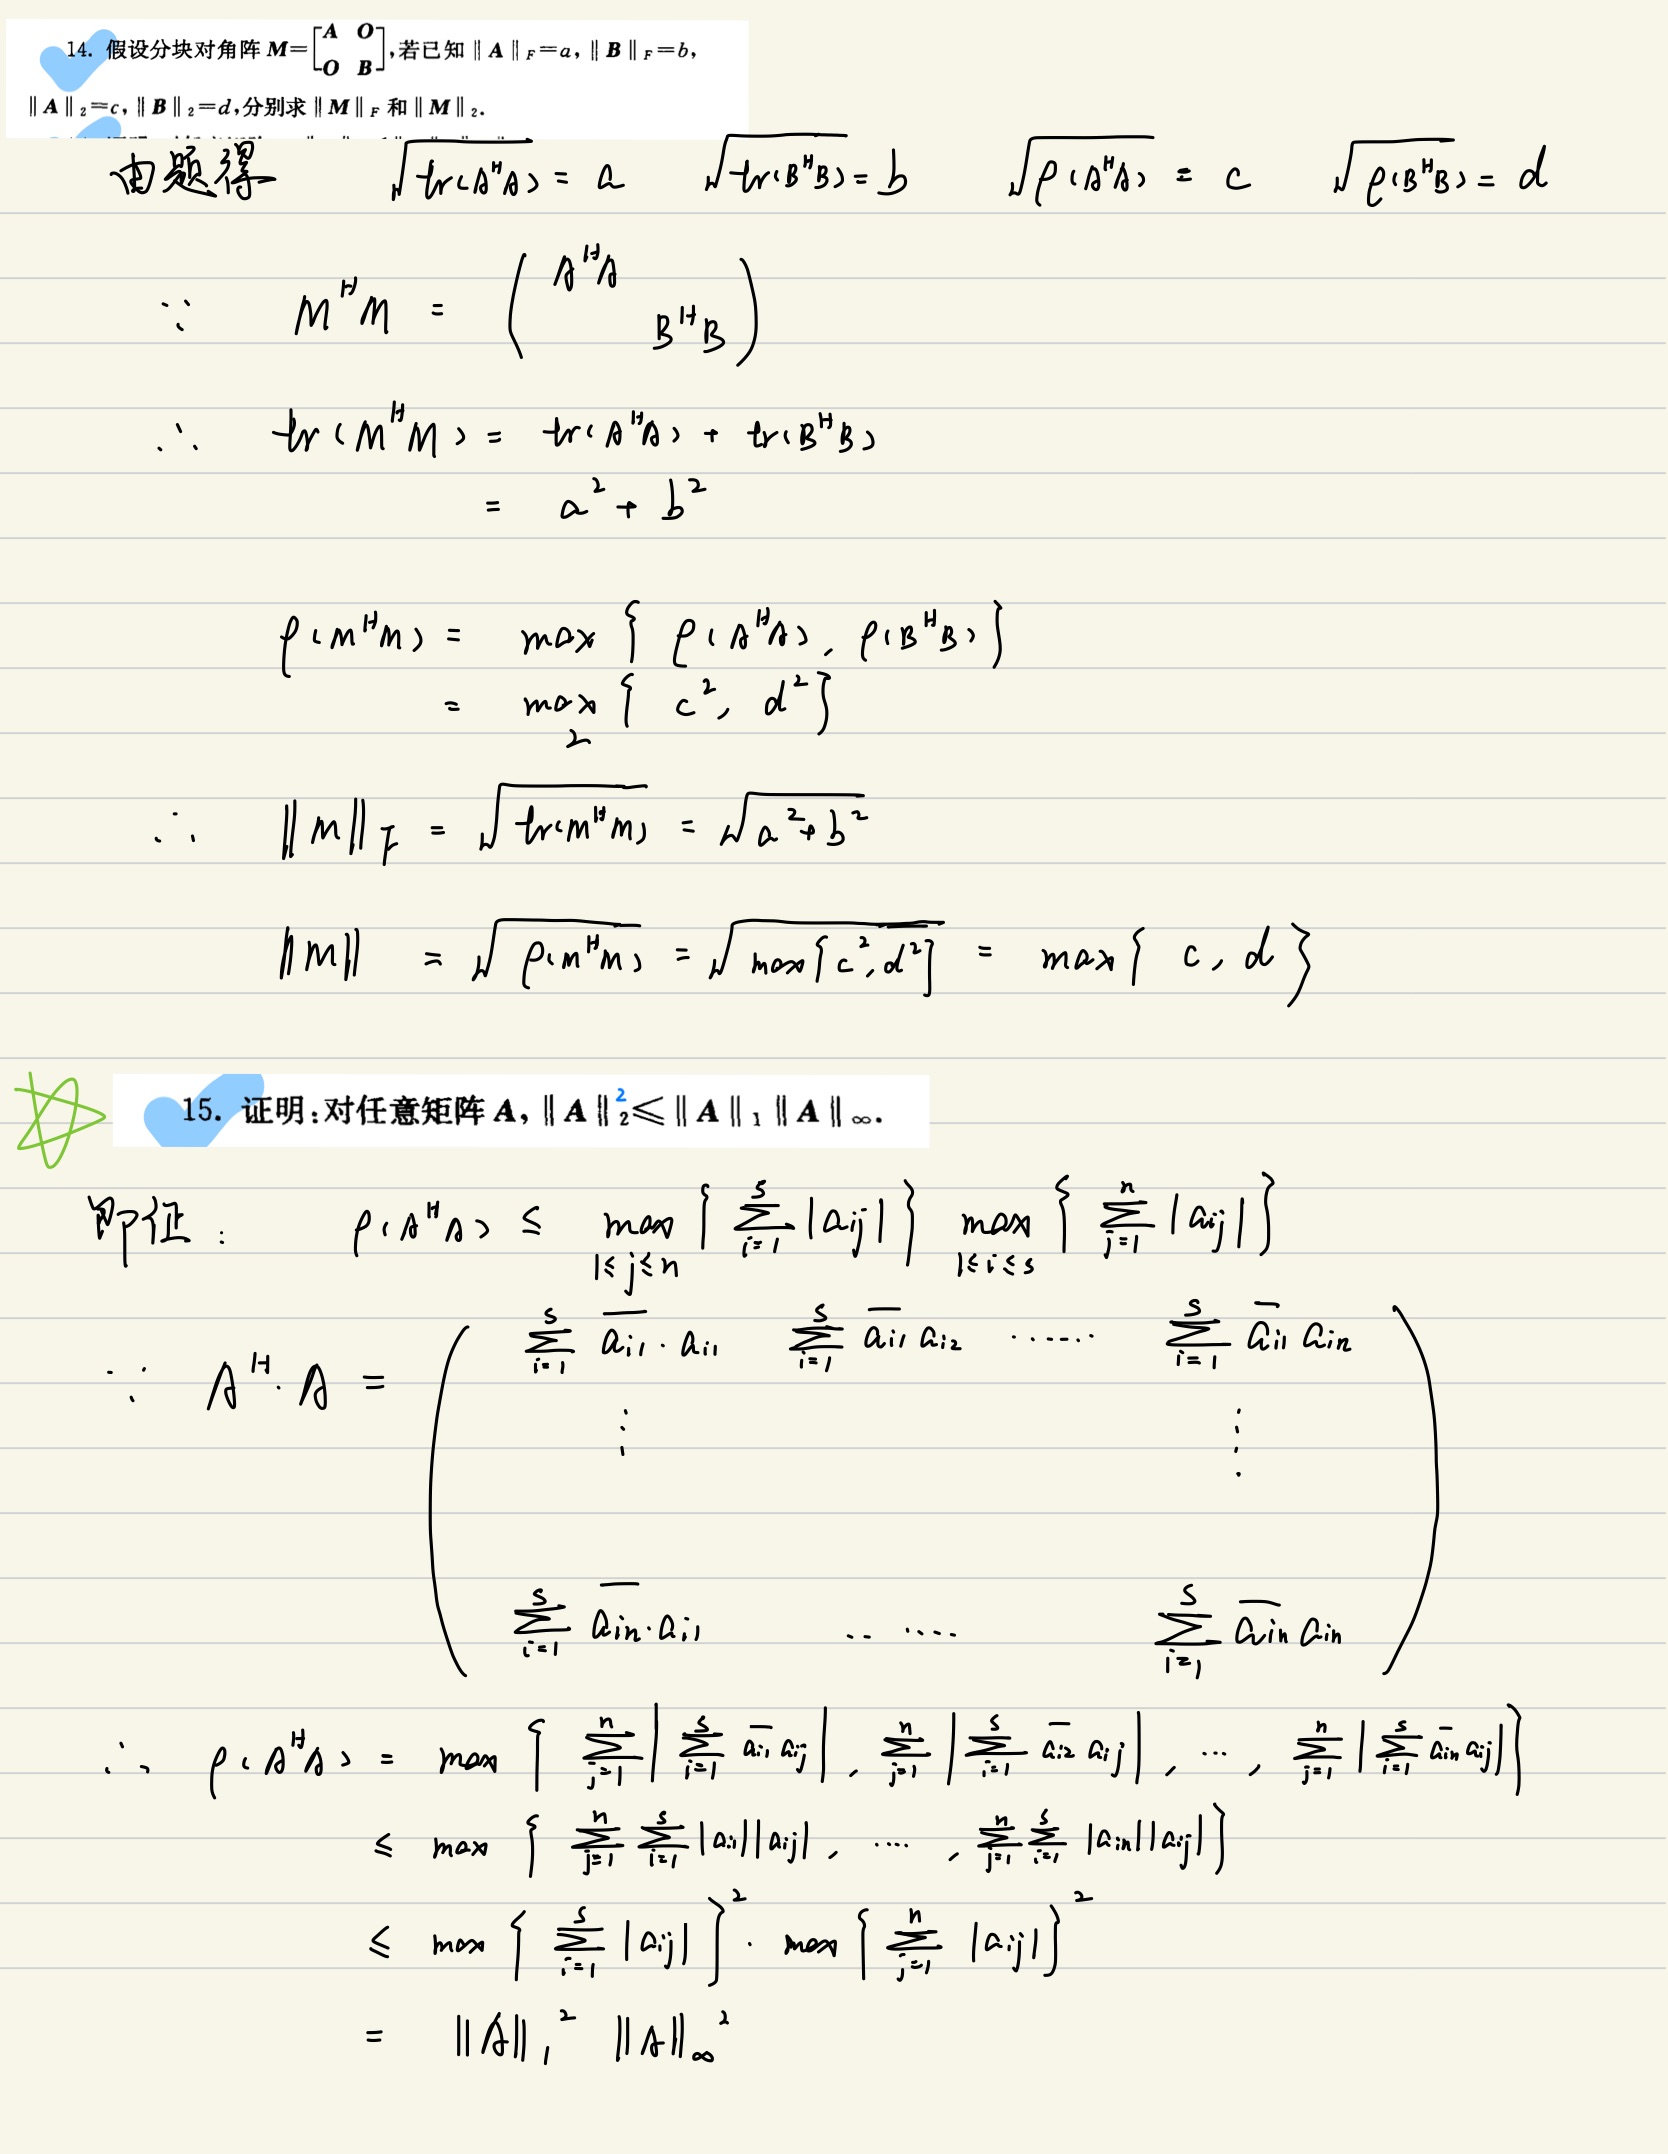 14. 假设分块对角阵 M=[A O; O B],若已知 ‖A‖_F=a,‖B‖_F=b,
‖A‖₂=c,‖B‖₂=d,分别求 ‖M‖_F 和 ‖M‖₂.
由题得 √tr(A^H A) = a √tr(B^H B) = b √ρ(A^H A) = c √ρ(B^H B) = d
∵ M^H M = ( A^H A
B^H B )
∴ tr(M^H M) = tr(A^H A) + tr(B^H B)
= a² + b²
ρ(M^H M) = max { ρ(A^H A), ρ(B^H B) }
= max { c², d² }
2
∴ ‖M‖_F = √tr(M^H M) = √a²+b²
‖M‖ = √ρ(M^H M) = √max{c², d²} = max{ c, d }
15. 证明:对任意矩阵 A,‖A‖₂²≤‖A‖₁‖A‖∞.
即证: ρ(A^H A) ≤ max_{1≤j≤n} { Σ_{i=1}^{s} |a_ij| } max_{1≤i≤s} { Σ_{j=1}^{n} |a_ij| }
∵ A^H · A = ( Σ_{i=1}^{s} \overline{a_i1} · a_i1 Σ_{i=1}^{s} \overline{a_i1} a_i2 ...... Σ_{i=1}^{s} \overline{a_i1} a_in
⋮ ⋮
Σ_{i=1}^{s} \overline{a_in} · a_i1 ...... Σ_{i=1}^{s} \overline{a_in} a_in )
∴ ρ(A^H A) = max { Σ_{j=1}^{n} | Σ_{i=1}^{s} \overline{a_i1} a_ij |, Σ_{j=1}^{n} | Σ_{i=1}^{s} \overline{a_i2} a_ij |, ..., Σ_{j=1}^{n} | Σ_{i=1}^{s} \overline{a_in} a_ij | }
≤ max { Σ_{j=1}^{n} Σ_{i=1}^{s} |a_i1||a_ij|, ...., Σ_{j=1}^{n} Σ_{i=1}^{s} |a_in||a_ij| }
≤ max { Σ_{i=1}^{s} |a_ij| }² · max { Σ_{j=1}^{n} |a_ij| }²
= ‖A‖₁² ‖A‖∞²